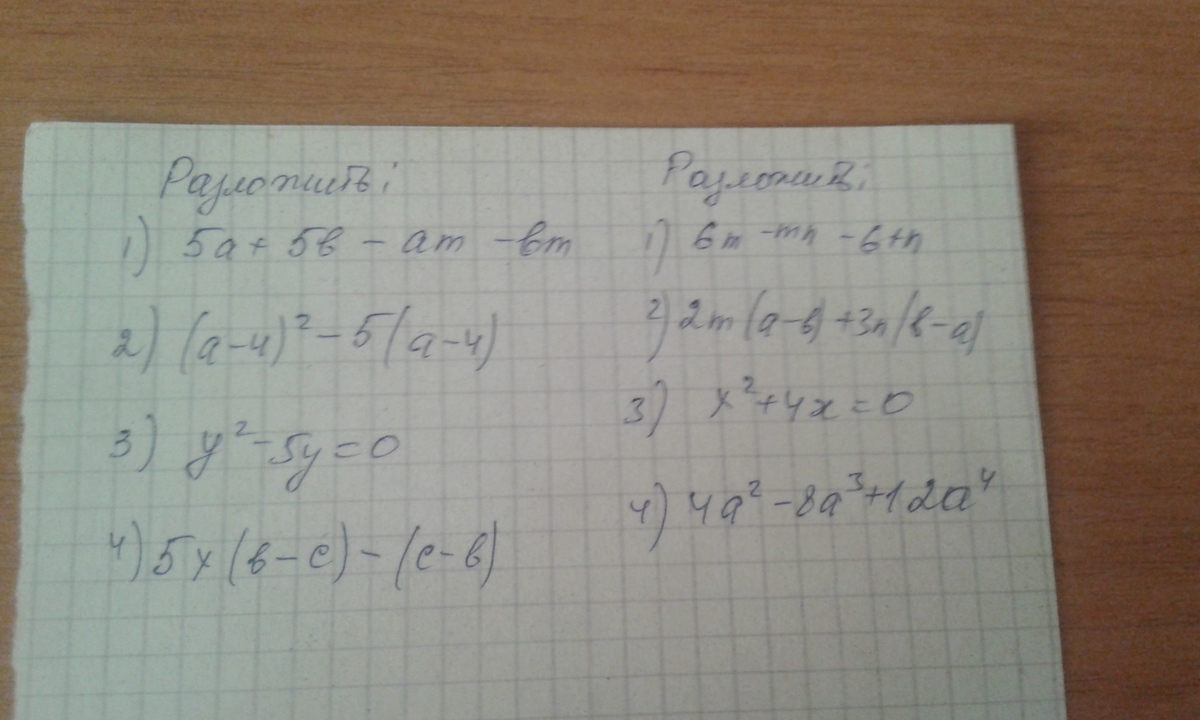 Разложить:
1) 5a + 5в - am - вm
2) (a-4)² - 5(a-4)
3) y² - 5y = 0
4) 5x(в-c) - (c-в)
Разложить:
1) 6m - mn - 6 + n
2) 2m(a-в) + 3n(в-a)
3) x² + 4x = 0
4) 4a² - 8a³ + 12a⁴